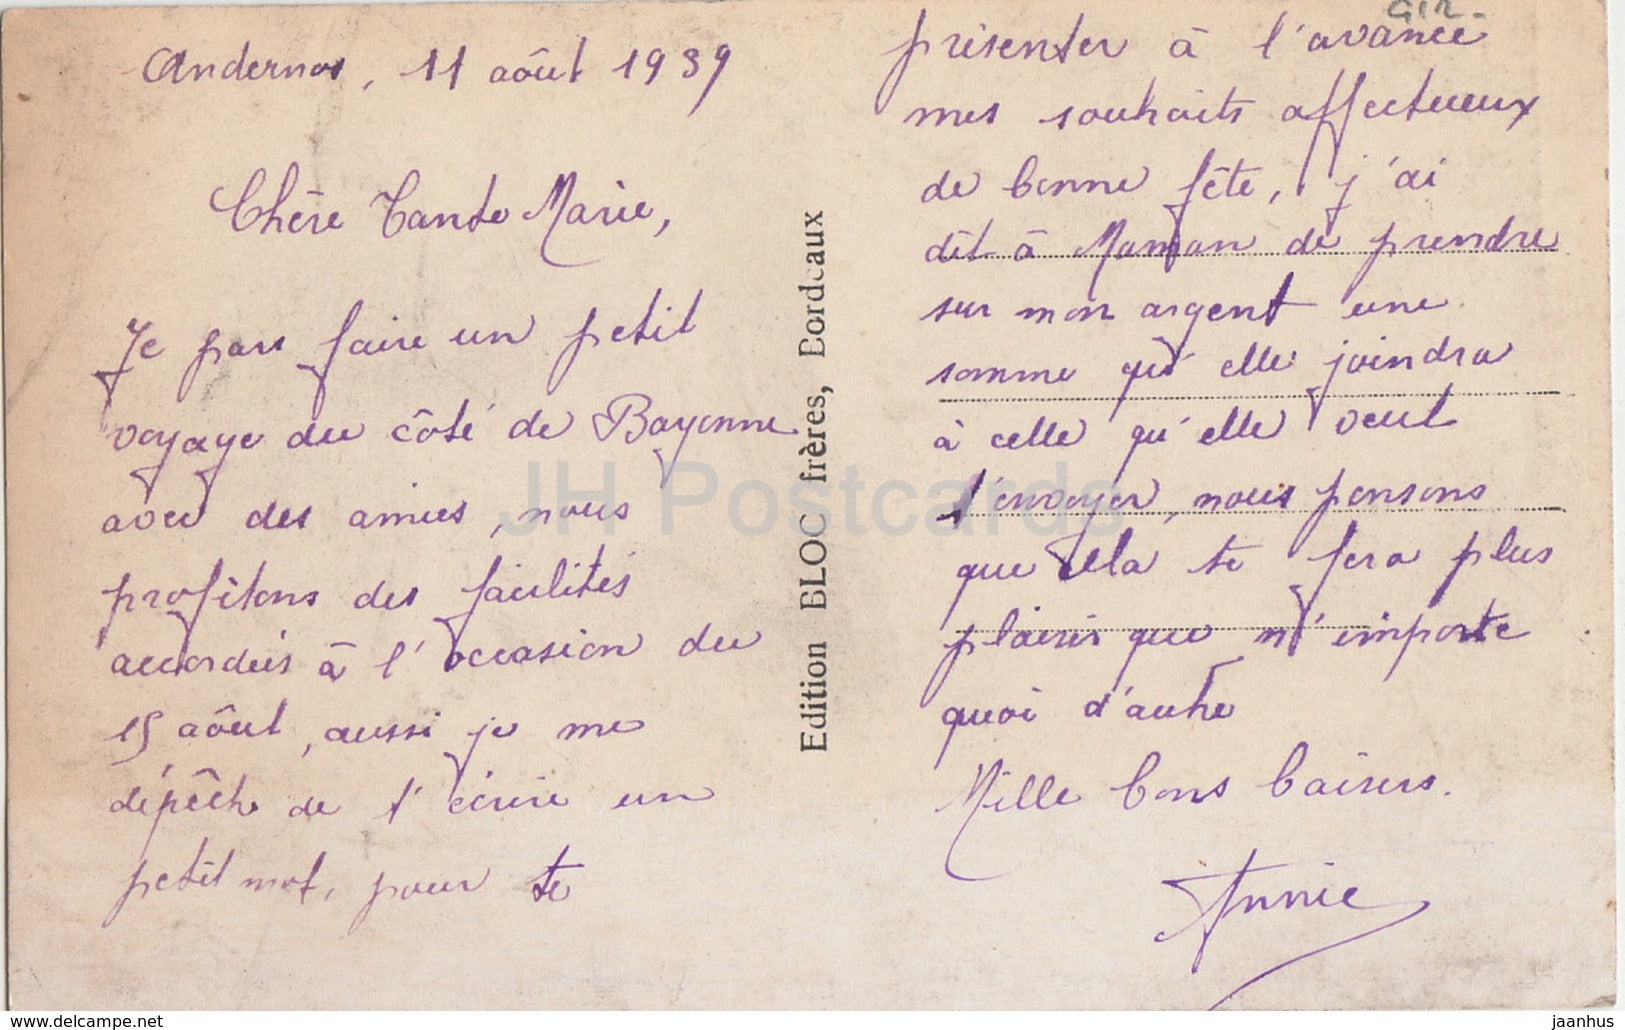 Andernos, 11 août 1939
Chère Tante Marie,
Je pars faire un petit
voyage du côté de Bayonne
avec des amies, nous
profitons des facilités
accordées à l'occasion du
15 août, aussi je me
dépêche de t'écrire un
petit mot, pour te
Edition BLOC frères, Bordeaux
GIR.
présenter à l'avance
mes souhaits affectueux
de bonne fête, j'ai
dit à Maman de prendre
sur mon argent une
somme qu'elle joindra
à celle qu'elle veut
t'envoyer, nous pensons
que cela te fera plus
plaisir que n'importe
quoi d'autre
Mille bons baisers.
Annie
JH Postcards
www.delcampe.net
jaanhus